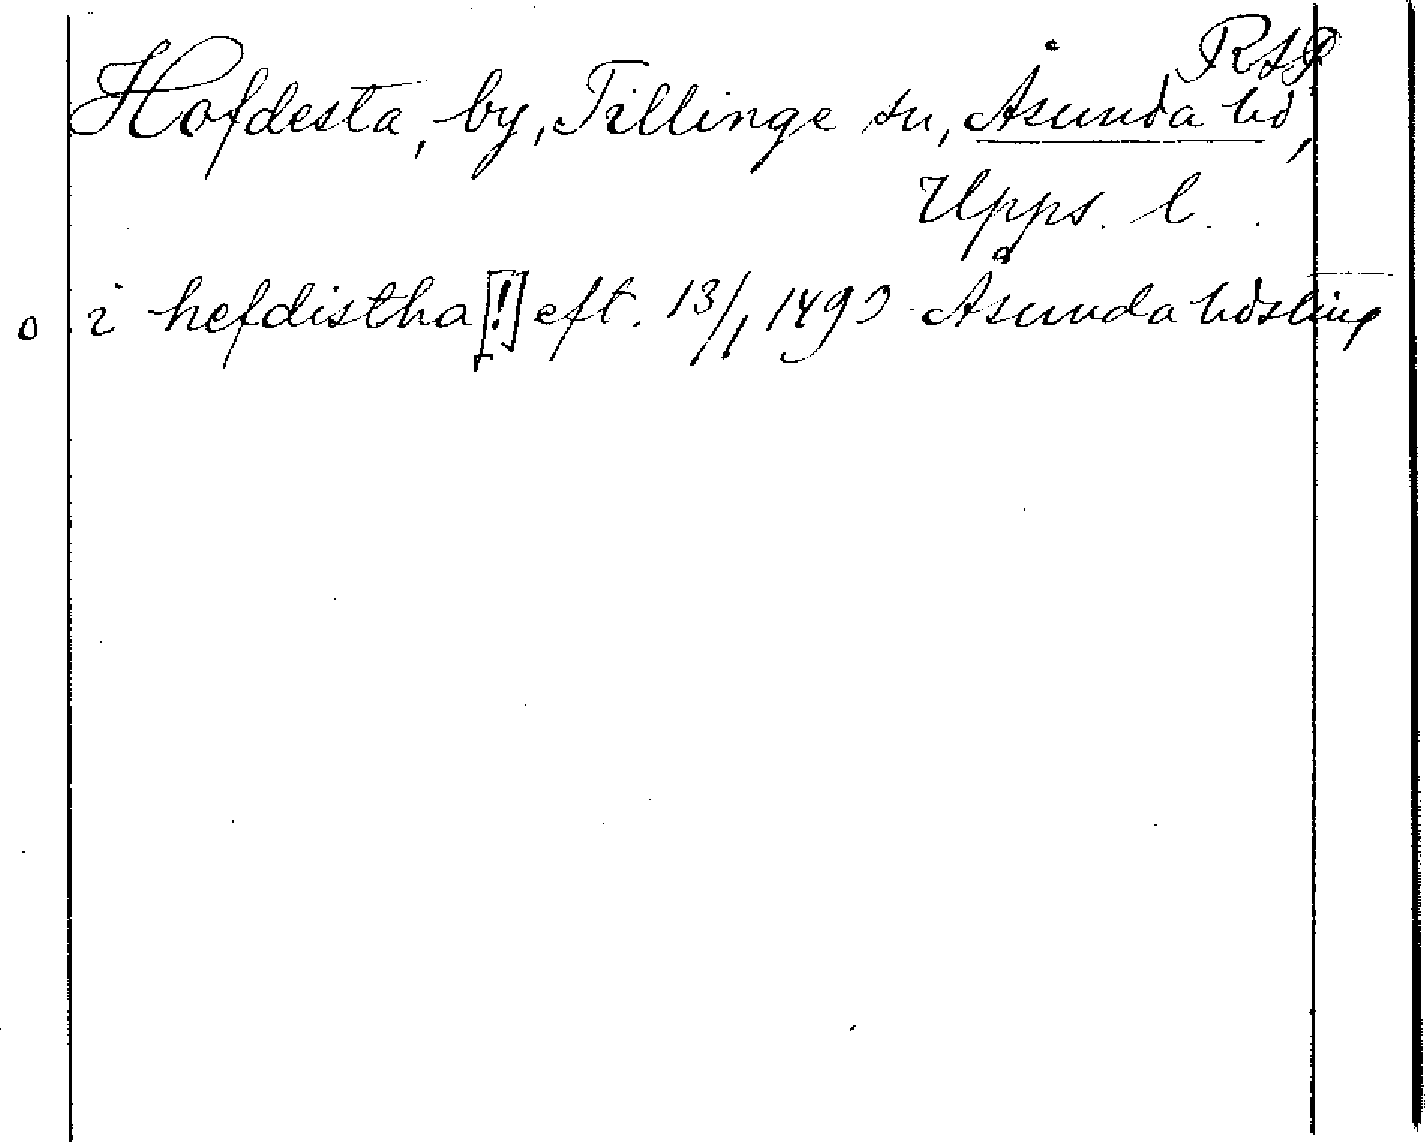 RAP
Hofdesta, by, Tillinge sn, Åsunda hd,
Upps. l.
o i hefdistha [!] eft. 13/1 1490 Åsunda hdsting